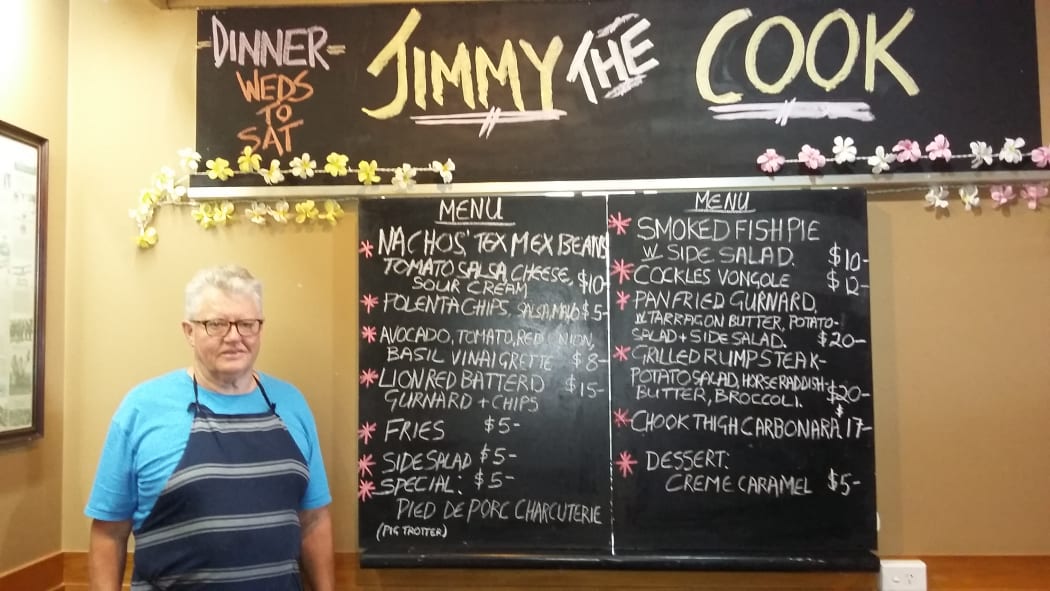 -DINNER-
WEDS
TO
SAT
JIMMY THE COOK
MENU
* NACHOS' TEX MEX BEANS
TOMATO SALSA, CHEESE, $10-
SOUR CREAM
* POLENTA CHIPS, SALSA, MAYO $5-
* AVOCADO, TOMATO, RED ONION,
BASIL VINAIGRETTE $8-
* LION RED BATTERD $15-
GURNARD + CHIPS
* FRIES $5-
* SIDE SALAD $5-
* SPECIAL: $5-
PIED DE PORC CHARCUTERIE
(PIG TROTTER)
MENU
* SMOKED FISH PIE
W SIDE SALAD. $10-
* COCKLES VONGOLE $12-
* PANFRIED GURNARD,
W TARRAGON BUTTER, POTATO-
SALAD + SIDE SALAD. $20-
* GRILLED RUMPSTEAK-
POTATO SALAD, HORSERADDISH-
BUTTER, BROCCOLI. $20-
* CHOOK THIGH CARBONARA $17-
* DESSERT:
CREME CARAMEL $5-